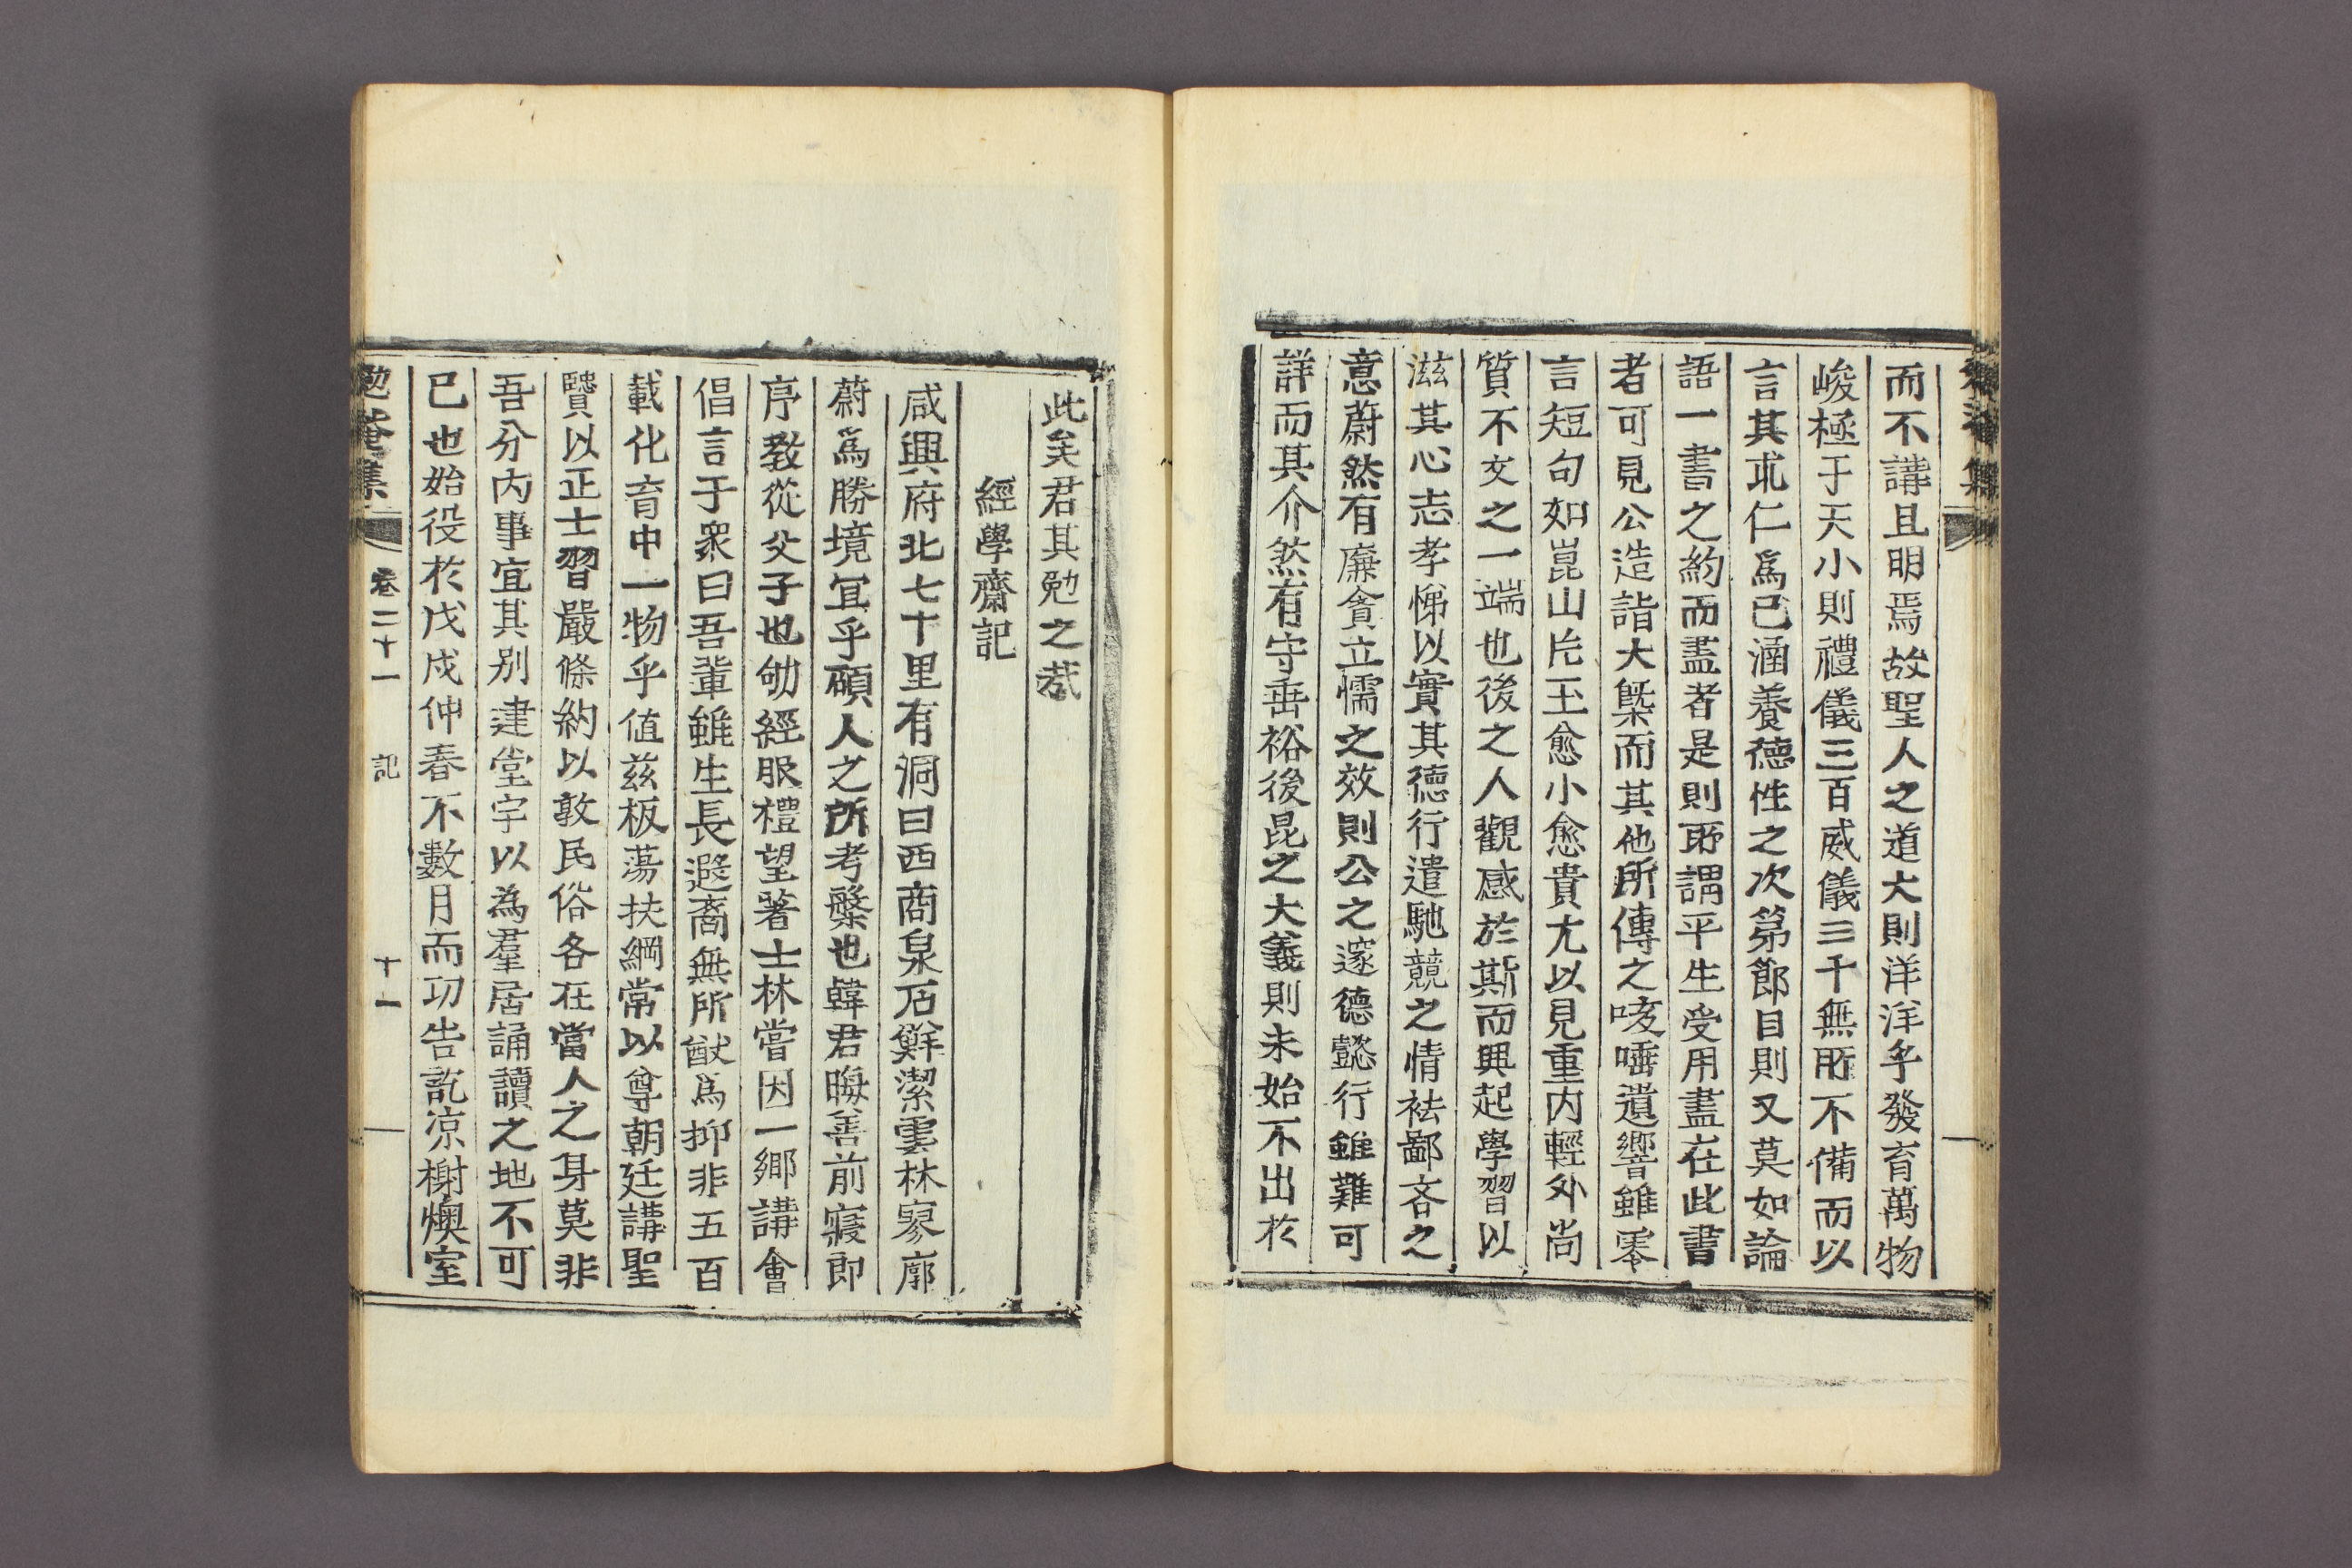 而不講且明焉故聖人之道大則洋洋乎發育萬物
峻極于天小則禮儀三百威儀三千無所不備而以
言其求仁爲己涵養德性之次第節目則又莫如論
語一書之約而盡者是則所謂平生受用盡在此書
者可見公造詣大槩而其他所傳之咳唾遺響雖零
言短句如崑山片玉愈小愈貴尤以見重內輕外尚
質不文之一端也後之人觀感於斯而興起學習以
滋其心志孝悌以實其德行遣馳競之情袪鄙吝之
意蔚然有廉貪立懦之效則公之邃德懿行雖難可
詳而其介然有守垂裕後昆之大義則未始不出於
此矣君其勉之哉
經學齋記
咸興府北七十里有洞曰西商泉石鮮潔雲林寥廓
蔚爲勝境冝乎碩人之所考槃也韓君晦善前寢郎
序敎從父子也劬經服禮望著士林嘗因一鄉講會
倡言于衆曰吾輩雖生長遐裔無所猷爲抑非五百
載化育中一物乎值玆板蕩扶綱常以尊朝廷講聖
贒以正士習嚴條約以敦民俗各在當人之身莫非
吾分內事宜其別建堂宇以為羣居誦讀之地不可
已也始役於戊戌仲春不數月而功告訖凉榭燠室
勉菴集 卷二十一 記 十一